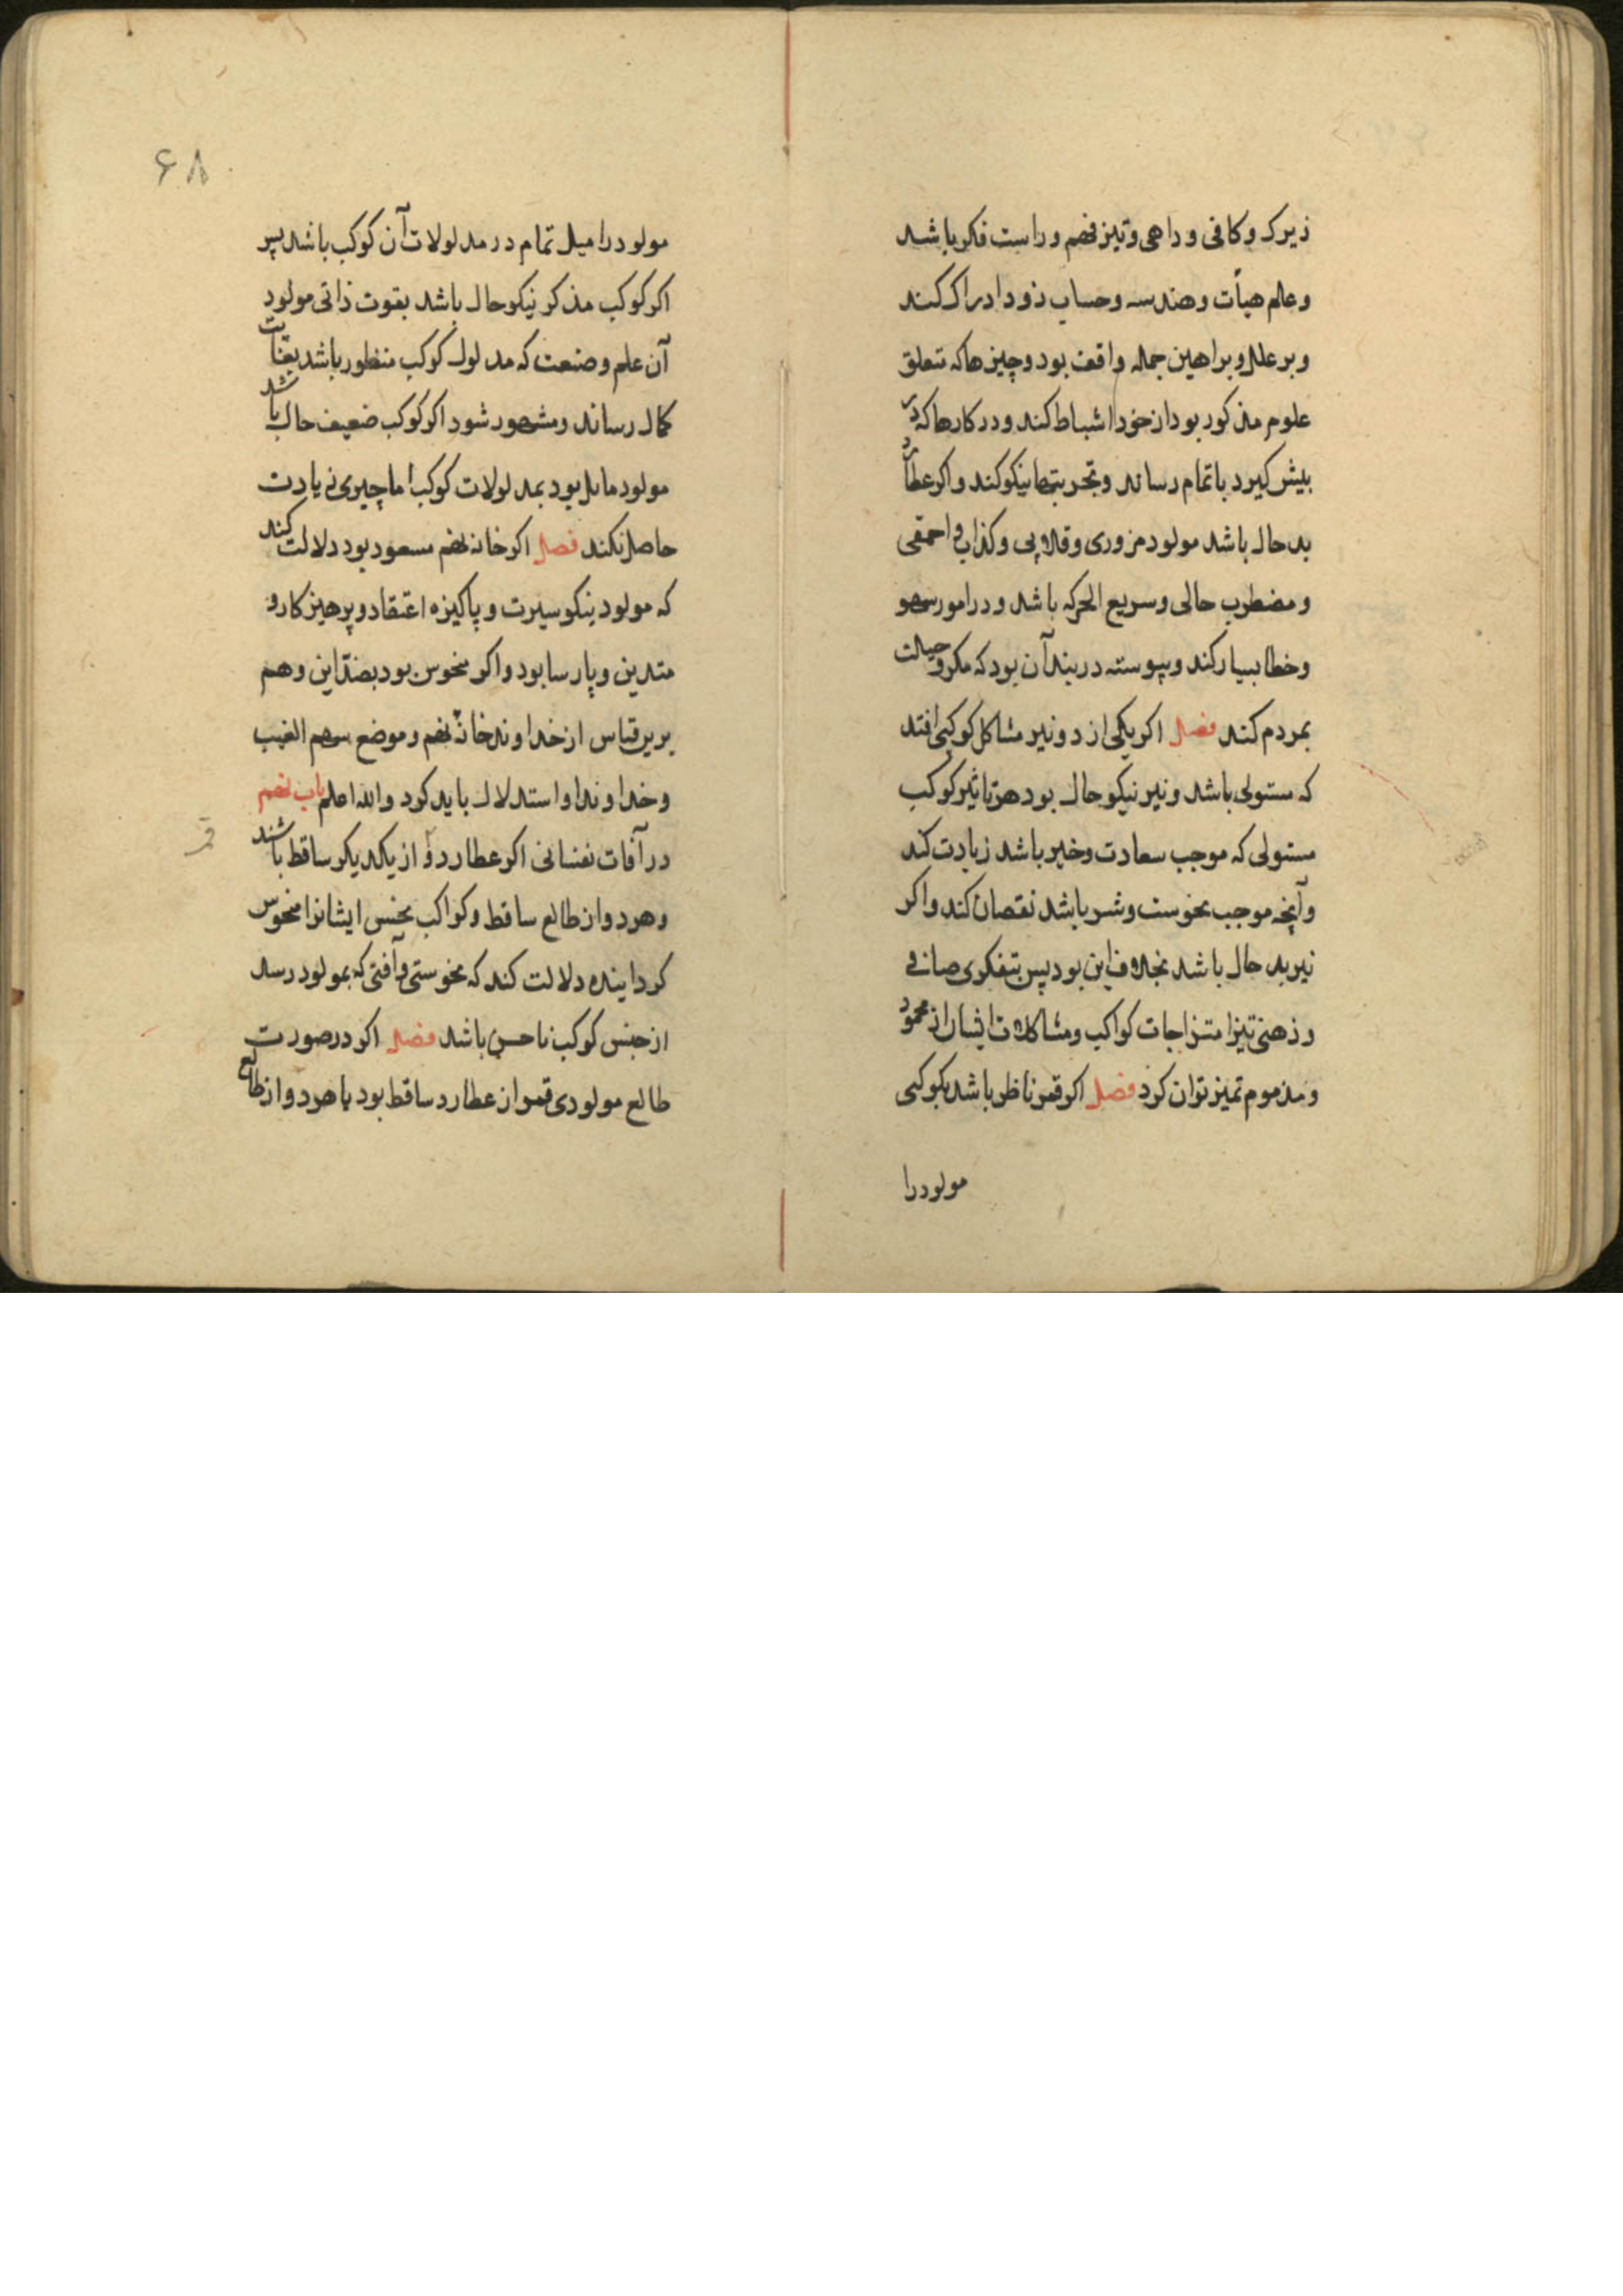 زیرک و کافی و داهی و تیز فهم و راست فکر باشد
و عالم هیأت و هندسه و حساب زود ادراک کند
و بر علل و براهین جمله واقف بود و چیزها که تعلق
علوم مذکور بود از خود اشباط کند و در کارها که در
بیش کیرد باتمام رساند و تجربتها نیکو کند و اکر عطارد
بد حال باشد مولود مزوری و قلابی و کذابی و احمقی
و مضطرب حالی و سریع الحرکه باشد و در امور سهو
و خطا بسیار کند و پیوسته در بند آن بود که مکر و حیلت
بمردم کند فصل اکر یکی از دو نیر مشاکل کوکبی افتد
که مستولی باشد و نیر نیکو حال بود هر تاثیر کوکب
مستولی که موجب سعادت و خیر باشد زیادت کند
و آنچه موجب نحوست و شر باشد نقصان کند و اکر
نیر بد حال باشد بخلاف این بود پس بتفکری صافی
و ذهنی تیز امتزاجات کواکب و مشاکلات ایشان از محمود
و مذموم تمیز توان کرد فصل اکر قمر ناظر باشد بکوکبی
مولود را
۶۸
مولود را میل تمام در مدلولات آن کوکب باشد پس
اکر کوکب مذکر نیکو حال باشد بقوت ذاتی مولود
آن علم و صنعت که مدلول کوکب منظور باشد بغایت
کمال رساند و مشهور شود اکر کوکب ضعیف حال باشد
مولود مایل بود بمدلولات کوکب اما چیزی زیادت
حاصل نکند فصل اکر خانه نهم مسعود بود دلالت کند
که مولود نیکو سیرت و پاکیزه اعتقاد و پرهیزکار و
متدین و پارسا بود و اکر منحوس بود بضد این و هم
برین قیاس از خداوند خانهٔ نهم و موضع سهم الغیب
و خداوند او استدلال باید کرد و الله اعلم باب نهم
در آفات نفسانی اکر عطارد و از یکدیکر ساقط باشند
قمر
و هر دو از طالع ساقط و کواکب نحس ایشانرا منحوس
کردانیده دلالت کند که نحوستی و آفتی که بمولود رسد
از جنس کوکب ناحس باشد فصل اکر در صورت
طالع مولودی قمر از عطارد ساقط بود یا هر دو از طالع